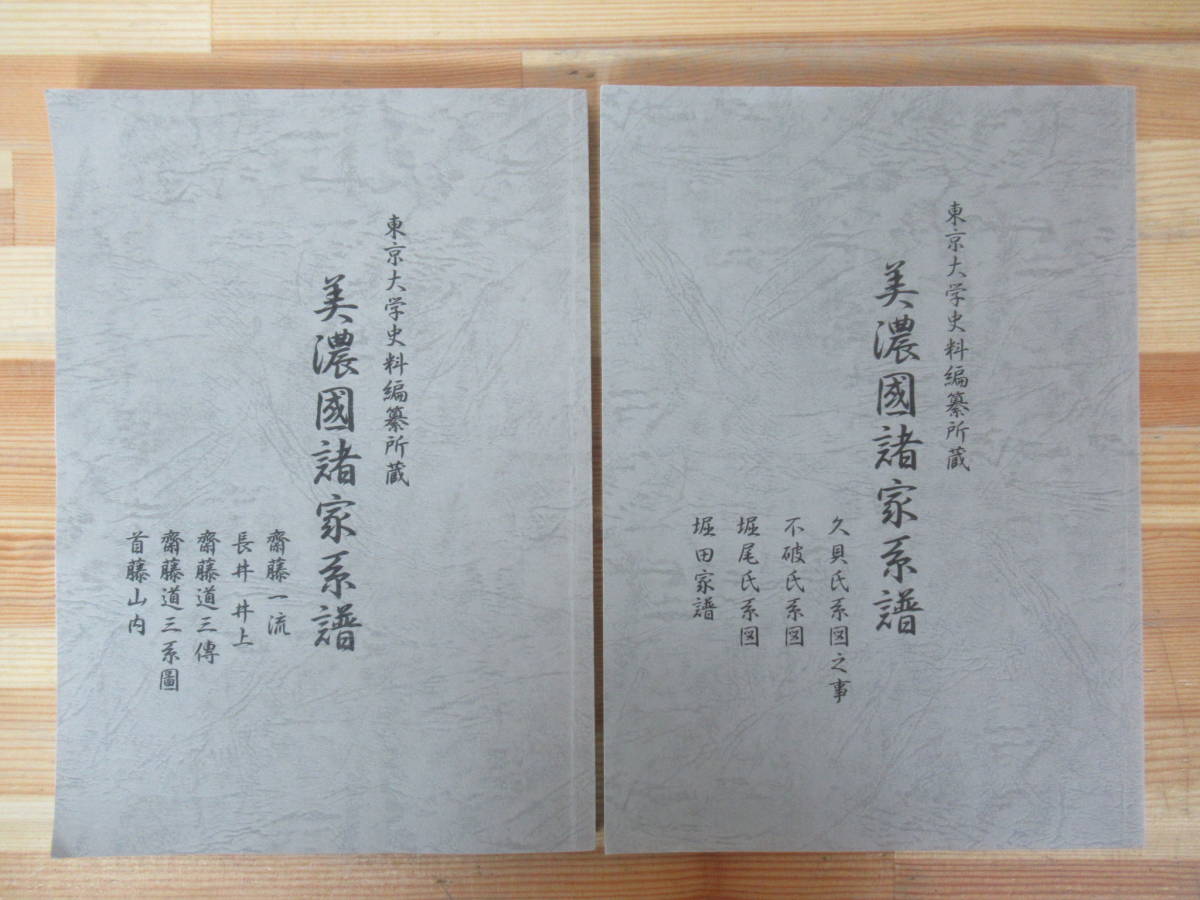 東京大学史料編纂所蔵
美濃國諸家系譜
齋藤一流
長井 井上
齋藤道三傳
齋藤道三系圖
首藤山内
東京大学史料編纂所蔵
美濃國諸家系譜
久貝氏系図之事
不破氏系図
堀尾氏系図
堀田家譜